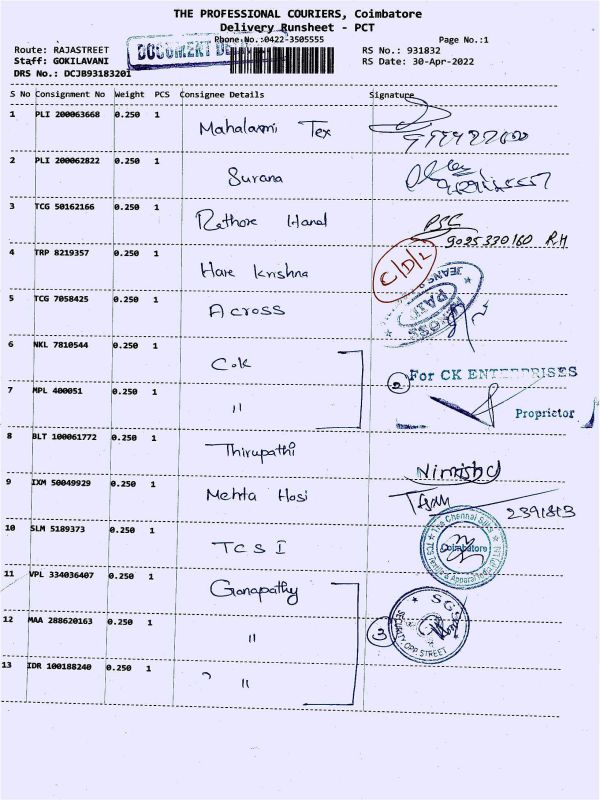 THE PROFESSIONAL COURIERS, Coimbatore
Delivery Runsheet - PCT
Phone No.:0422-3505555
Page No.:1
Route: RAJASTREET
RS No.: 931832
Staff: GOKILAVANI
DOCUMENT
RS Date: 30-Apr-2022
DRS No.: DCJB93183201
S No Consignment No Weight PCS Consignee Details Signature
1 PLI 200063668 0.250 1 Mahalaxmi Tex
2 PLI 200062822 0.250 1 Surana
3 TCG 50162166 0.250 1 Rathore Hand
9025330160 RH
4 TRP 8219357 0.250 1 Hare Krishna
C/D/2
5 TCG 7058425 0.250 1 Across
ACROSS JEANS
PAID
6 NKL 7810544 0.250 1 C.K
2 For CK ENTERPRISES
7 MPL 400051 0.250 1 "
Proprietor
8 BLT 100061772 0.250 1 Thirupathi
9 IXM 50049929 0.250 1 Mehta Hosi
2391813
10 SLM 5189373 0.250 1 TCS I
The Chennai Silks
Coimbatore
11 VPL 334036407 0.250 1 Ganapathy
12 MAA 288620163 0.250 1 "
3
SECURITY, OPP. STREET
13 IDR 100188240 0.250 1 "